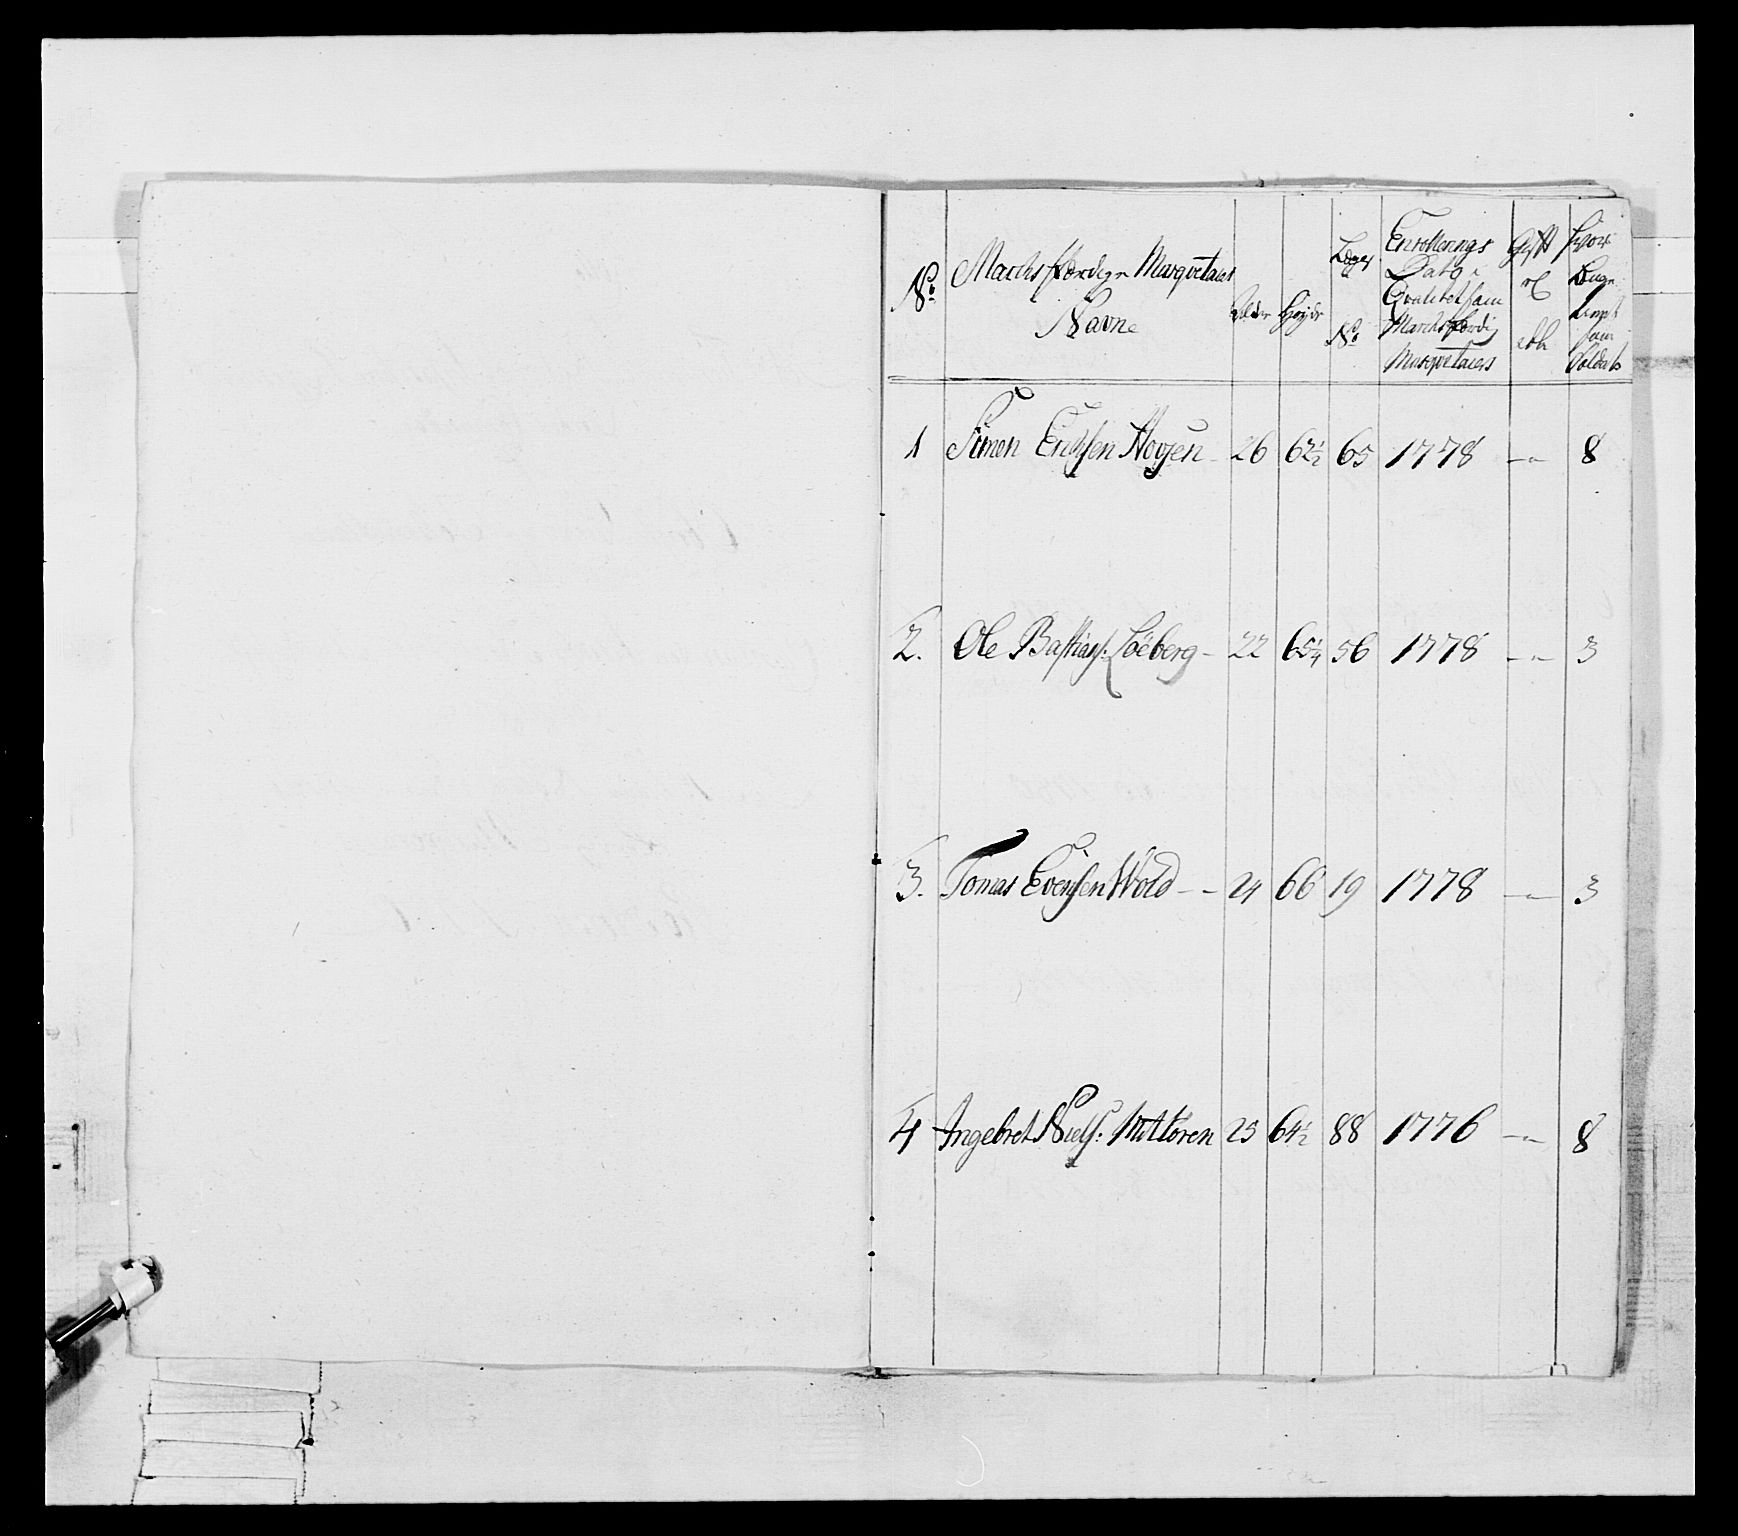 No
Marchsfærdige Musqvetairs
Navne
Alder
Høyde
Lægs
No
Enrollerings
Dato i
Qvalitet som
Marchsfærdig
Musqvetairs
Gift
eller
ikke
Hvor
Længe
tient
som
Soldat
1 Simon Erichsen Hovjen 26 62½ 65 1778 -"- 8
2. Ole Bastians: Løeberg - 22 65¼ 56 1778 -"- 3
3. Tomas Evensen Wold - - 24 66 19 1778 -"- 3
4 Ingebret Niels: 25 64½ 88 1776 -"- 8